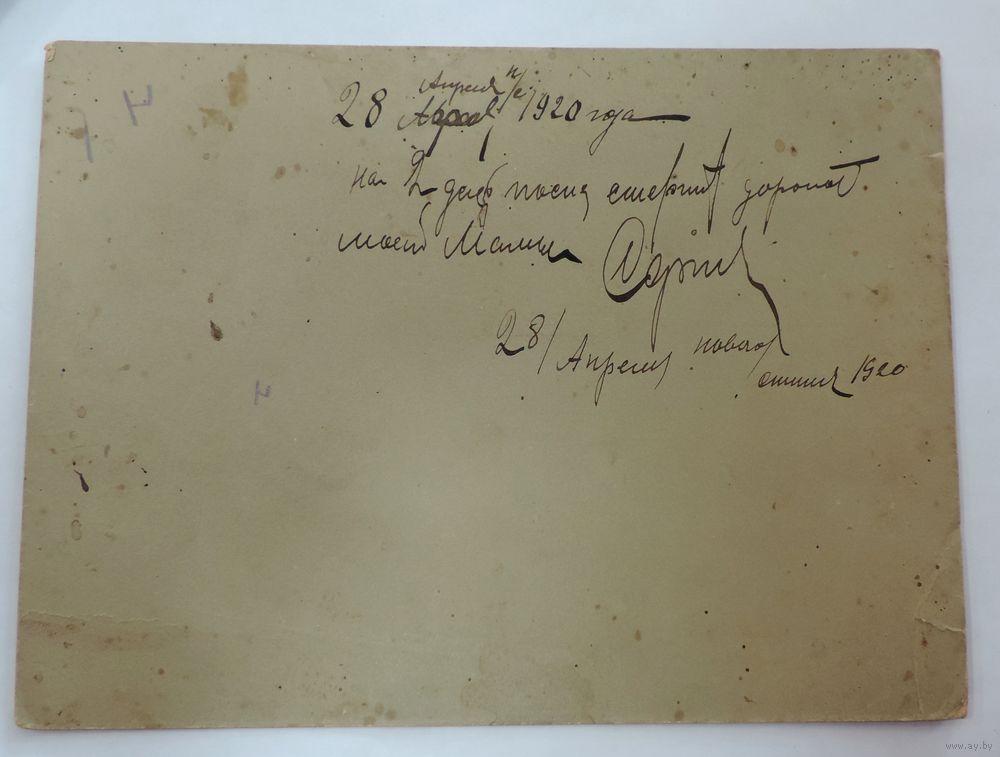 4
Апреля н/с
28 1920 года
на 2 день после смерти дорогой
моей Мамы
28/ Апреля нового
стиля 1920
4
www.ay.by